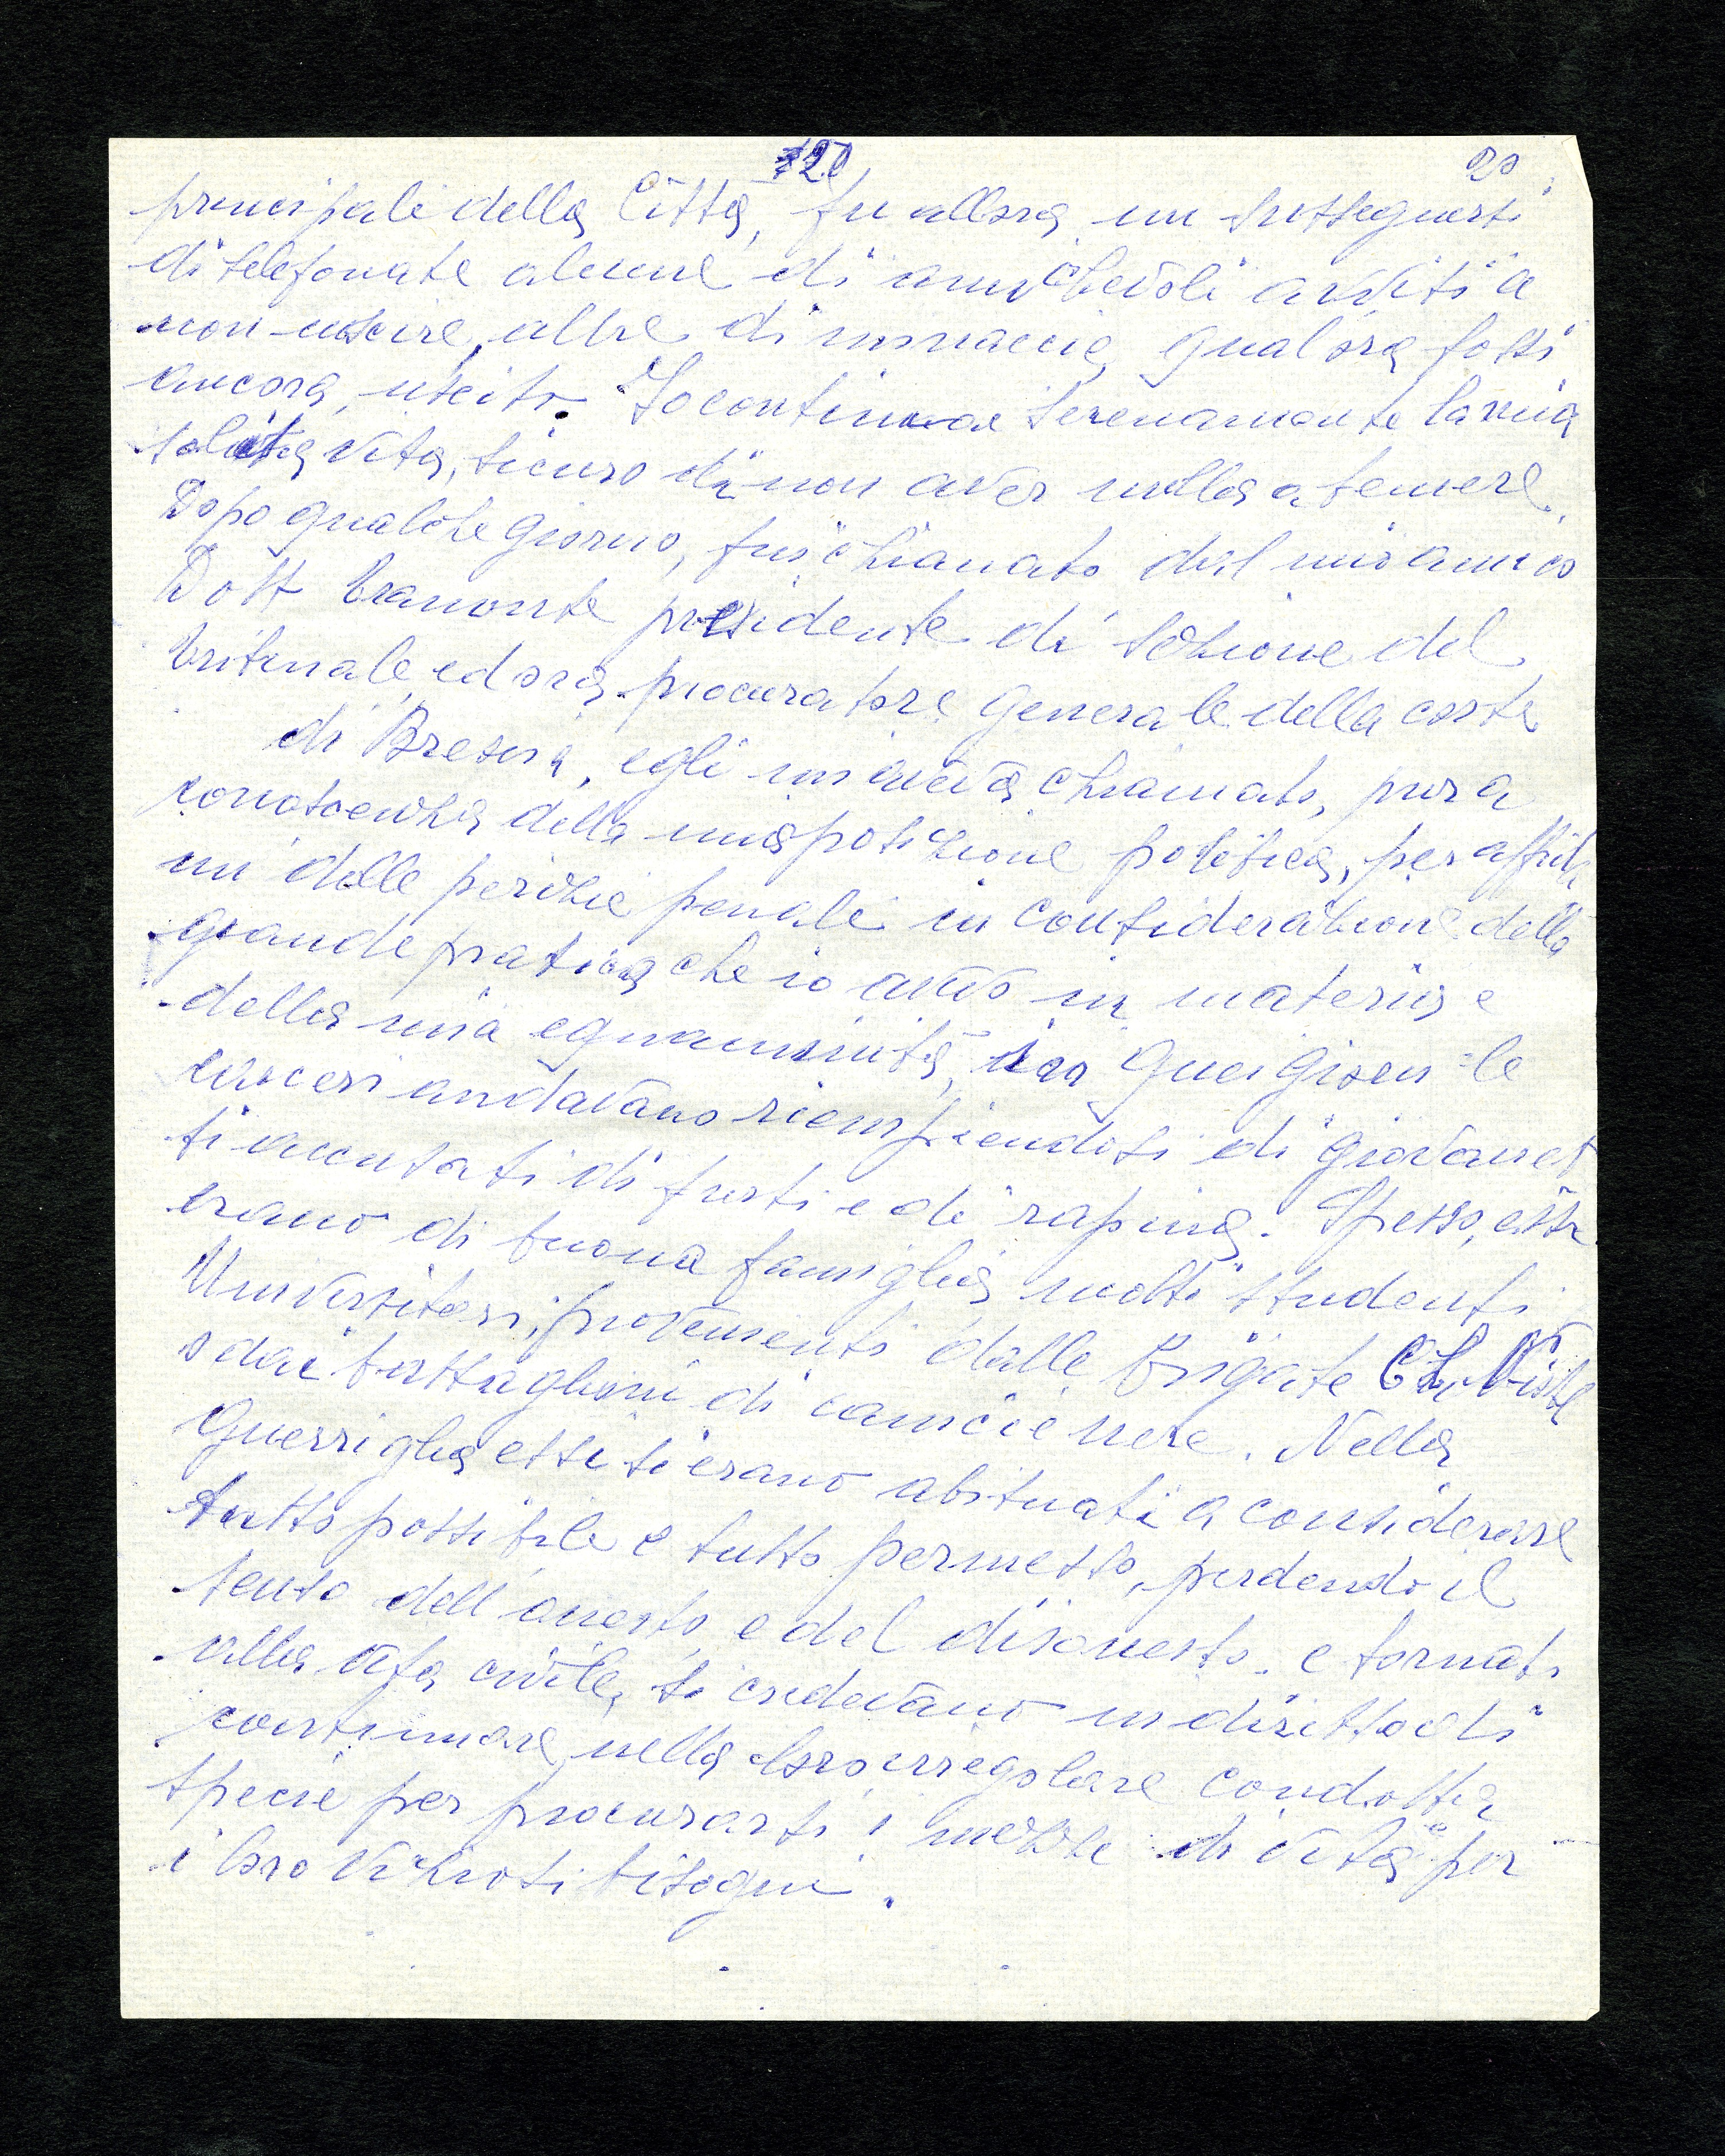 120 20
principale della Città, fu allora un susseguirsi
di telefonate alcune di amichevoli inviti a
non uscire, altre di minaccie, qualora fossi
ancora uscito. Io continuai serenamente la mia
solita vita, sicuro di non aver nulla a temere.
Dopo qualche giorno, fui chiamato dal mio amico
Dott Tramonte presidente di sezione del
tribunale ed ora procuratore generale della corte
di Brescia, egli mi aveva chiamato, pur a
conoscenza della mia posizione politica, per affida
mi delle perizie penali in considerazione della
grande pratica che io avevo in materia e
della mia equanimità, in quei giorni le
carceri andavano riempiendosi di giovanet
ti accusati di furti e di rapina. Spesso, essi
erano di buona famiglia molti studenti
Universitari, provenienti dalle brigate
o dai battaglioni di camicie nere. Nella
Guerriglia essi si erano abituati a considerare
tutto possibile e tutto permesso, perdendo il
senso dell'onesto e del disonesto. e tornati
alla vita civile, si credevano in diritto di
continuare nella loro irregolare condotta
specie per procurarsi i mezzi di vita per
i loro viziosi bisogni.